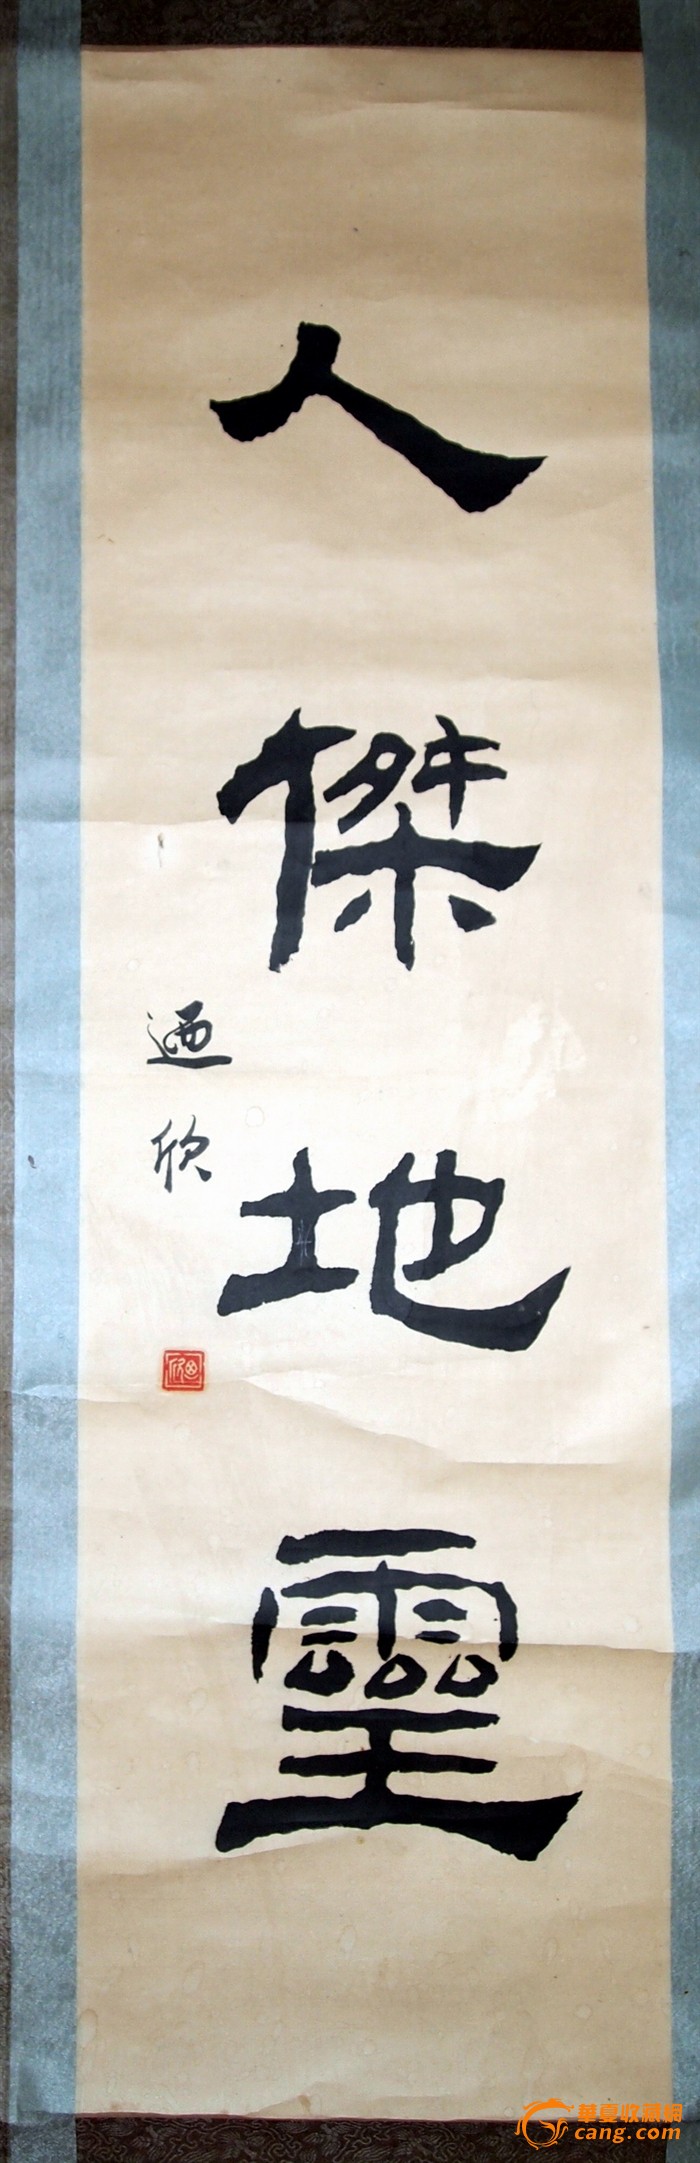 人傑地靈
迺欣
華夏收藏網
cang.com